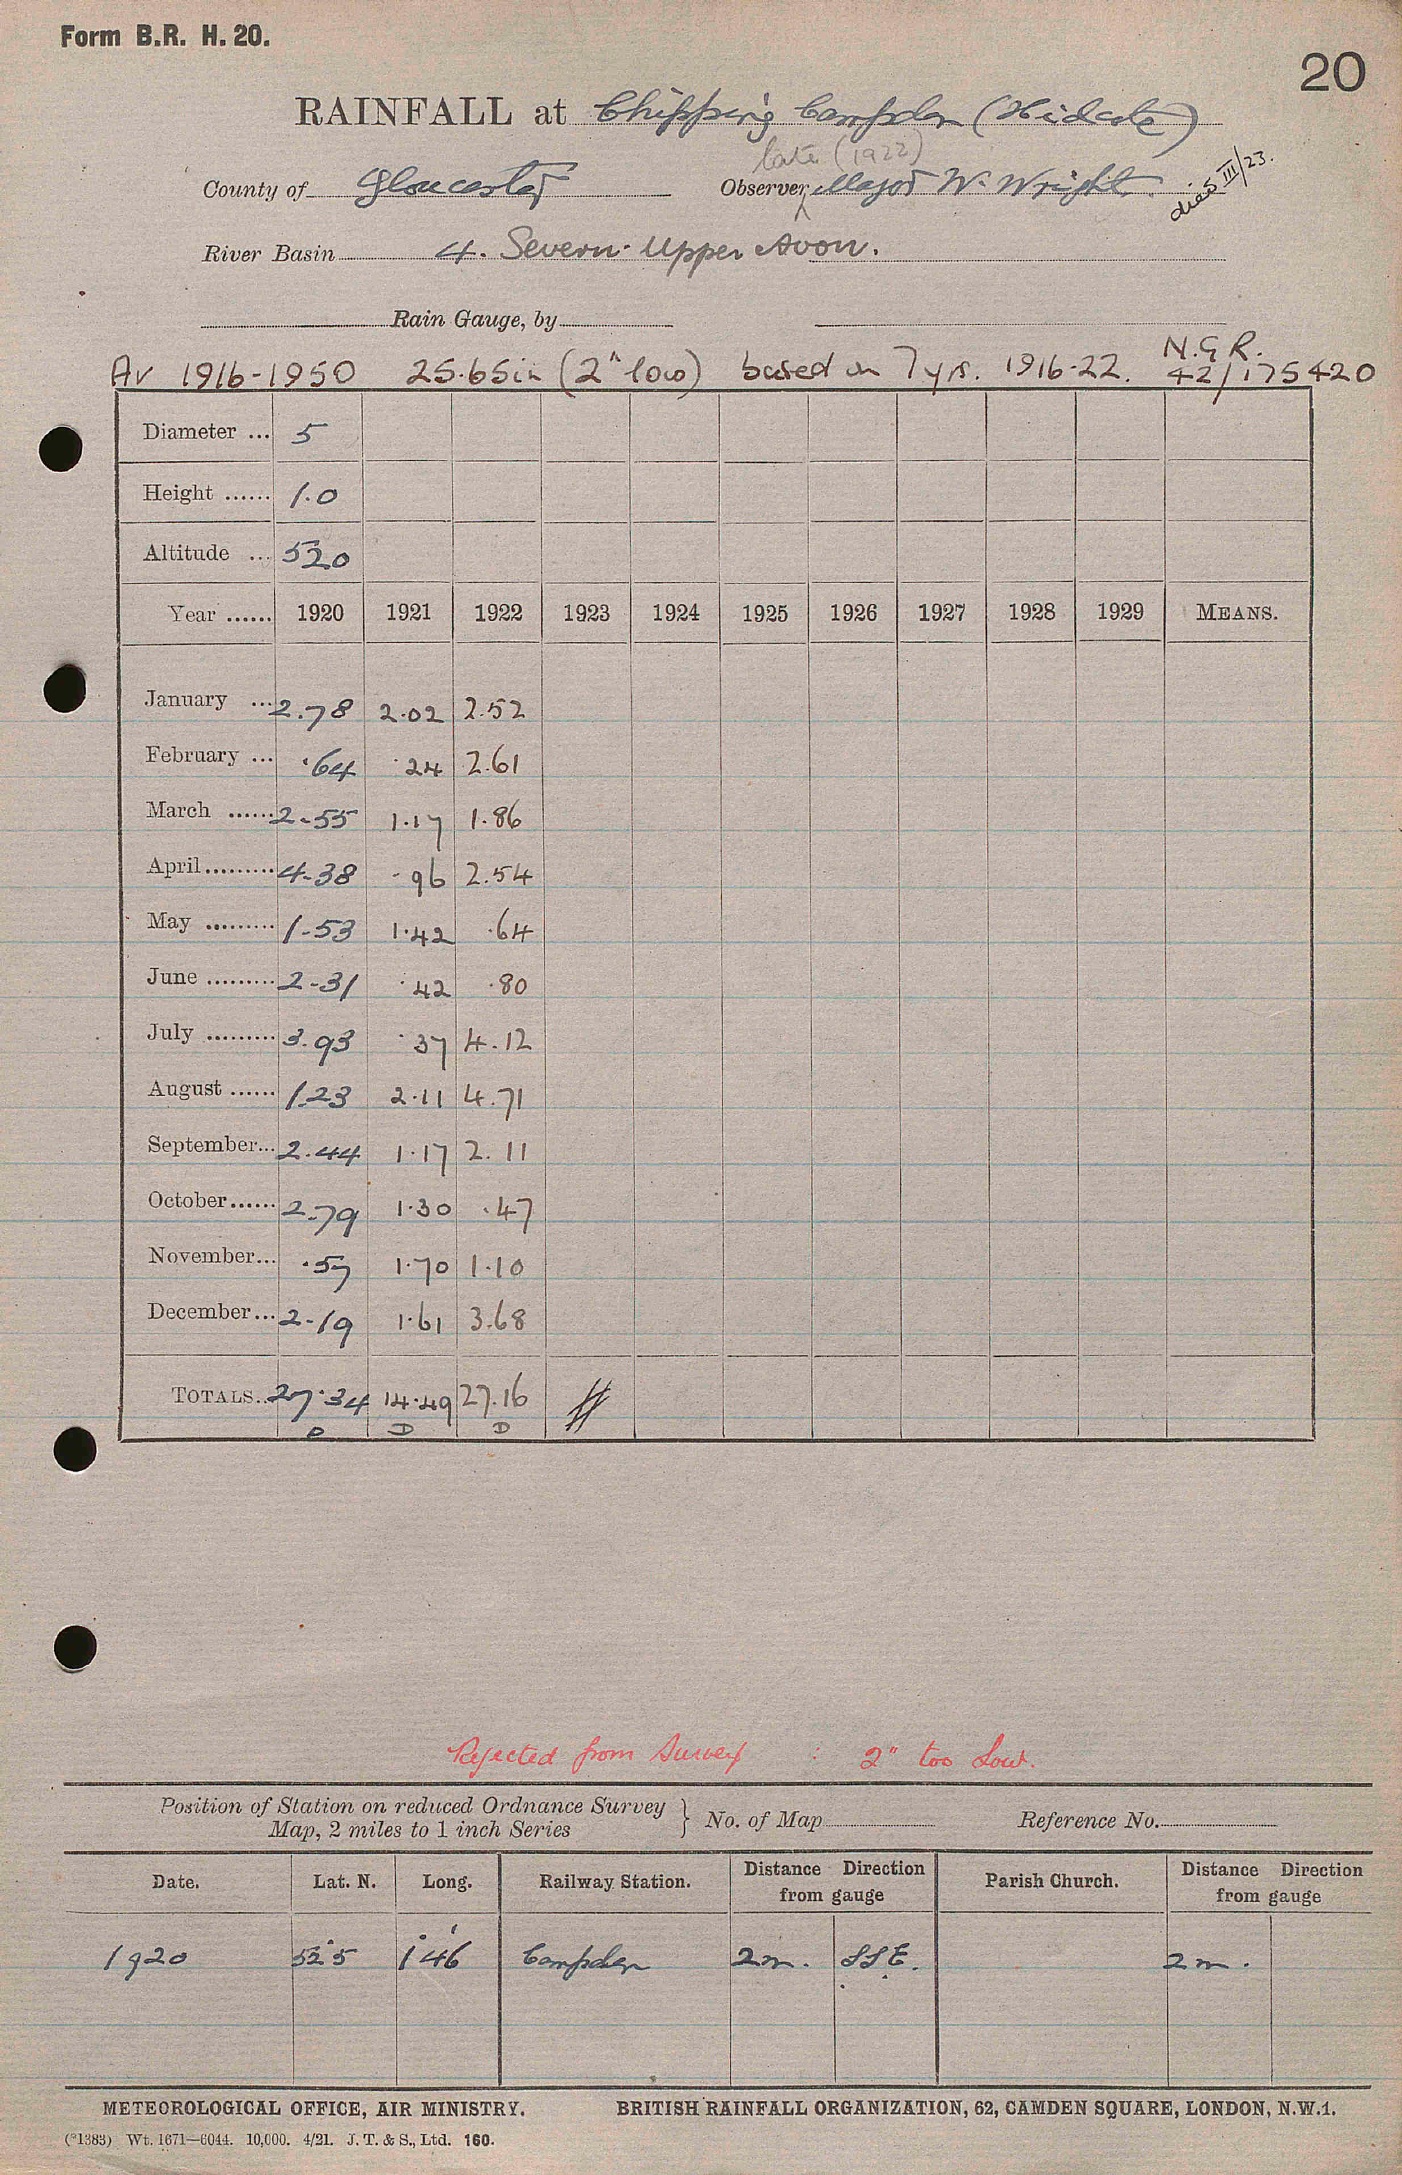 Form B.R. H. 20.
20
RAINFALL at Chipping Campden (Hidcote)
late (1922)
County of Gloucester Observer Major W. Wright. died III/23.
River Basin 4. Severn. Upper Avon.
Rain Gauge, by
N.G.R.
Av 1916-1950 25.65in (2" low) based on 7 yrs. 1916-22. 42/175420
Diameter ... 5
Height ...... 1.0
Altitude ... 520
Year ...... 1920 1921 1922 1923 1924 1925 1926 1927 1928 1929 MEANS.
January ... 2.78 2.02 2.52
February ... .64 .24 2.61
March ...... 2.55 1.17 1.86
April ......... 4.38 .96 2.54
May ......... 1.53 1.42 .64
June ......... 2.31 .42 .80
July ......... 3.93 .37 4.12
August ...... 1.23 2.11 4.71
September... 2.44 1.17 2.11
October...... 2.79 1.30 .47
November... .57 1.70 1.10
December... 2.19 1.61 3.68
TOTALS.. 27.34 14.49 27.16
D D D
Rejected from Survey : 2" too low.
Position of Station on reduced Ordnance Survey
Map, 2 miles to 1 inch Series } No. of Map Reference No.
Date. Lat. N. Long. Railway Station. Distance Direction from gauge Parish Church. Distance Direction from gauge
1920 52°5 1°46' Campden 2 m. SSE. 2 m.
METEOROLOGICAL OFFICE, AIR MINISTRY. BRITISH RAINFALL ORGANIZATION, 62, CAMDEN SQUARE, LONDON, N.W.1.
(*1383) Wt. 1671—6044. 10,000. 4/21. J. T. & S., Ltd. 160.